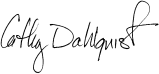 Cathy Dahlquist